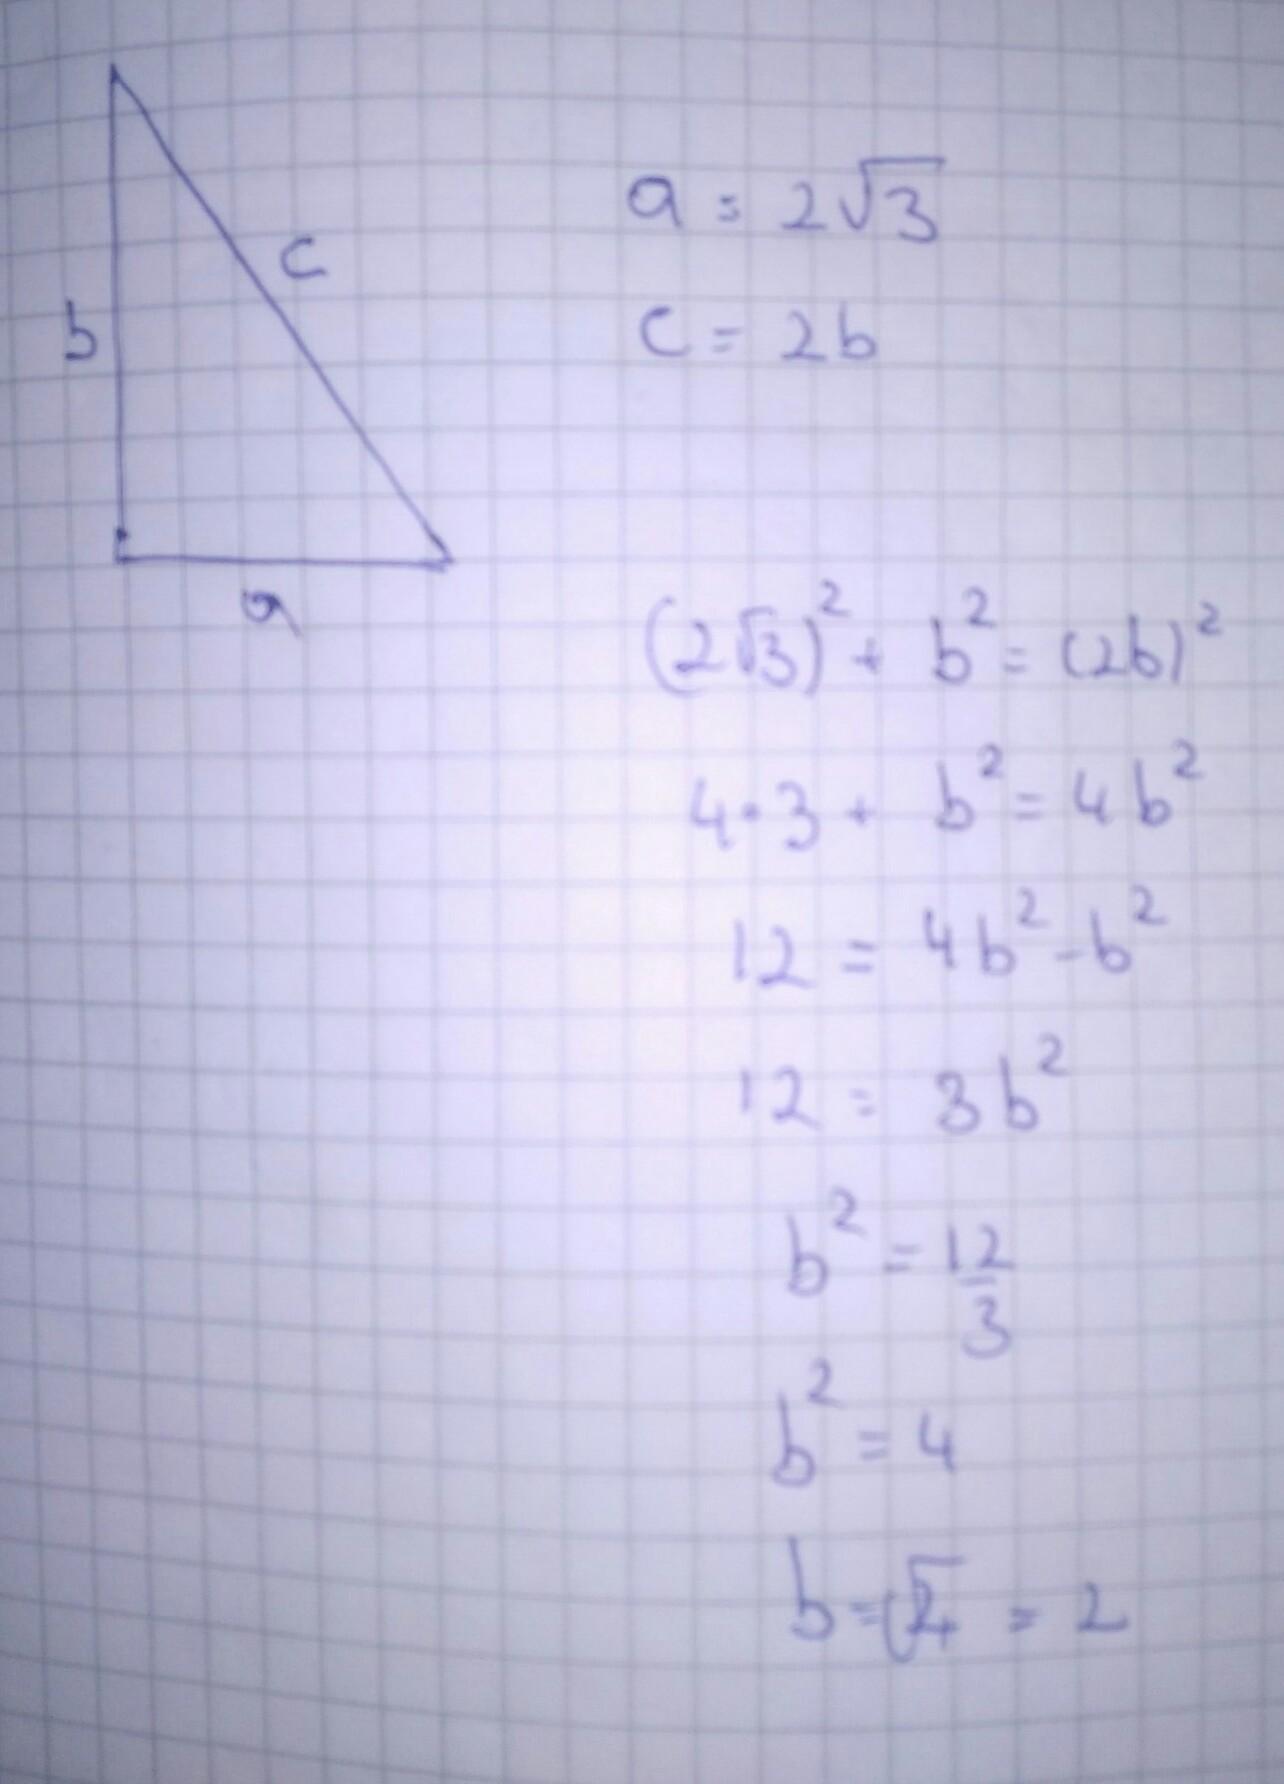 b
c
a
a = 2√3
c = 2b
(2√3)² + b² = (2b)²
4·3 + b² = 4b²
12 = 4b² - b²
12 = 3b²
b² = 12/3
b² = 4
b = √4 = 2